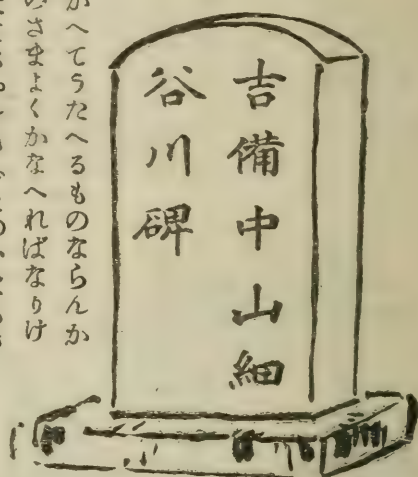 吉備中山細
谷川碑
かへてうたへるものならんか
のさまよくかなへればなりけ